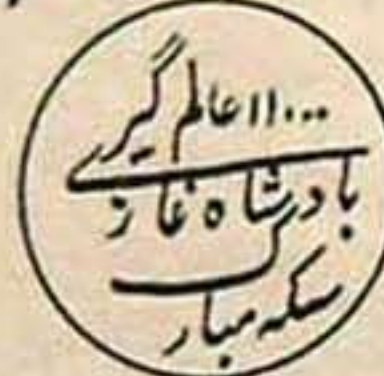 ۱۱... عالم گیر
بادشاہ غازے
سکہ مبارک